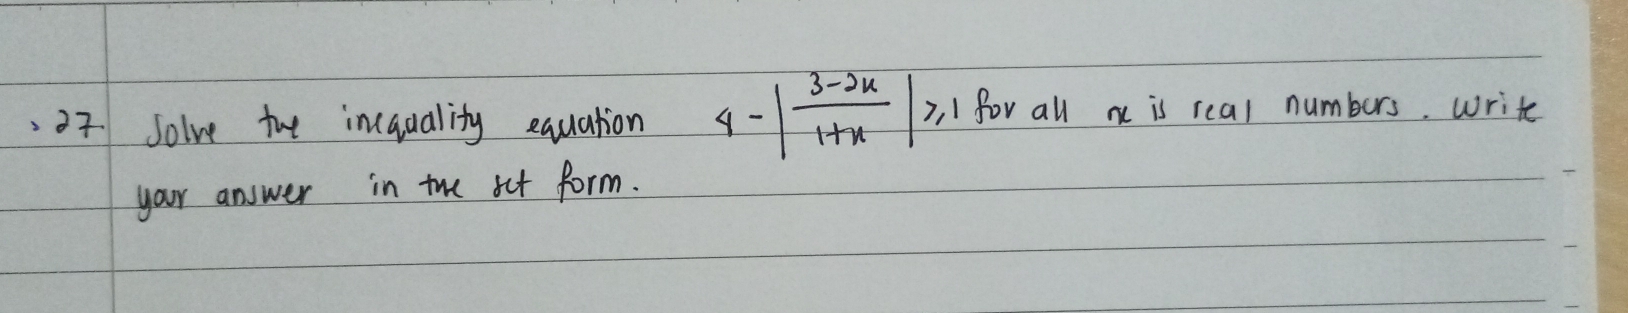 27. Solve the inequality equation 4 - |(3-2x)/(1+x)| ≥ 1 for all x is real numbers. Write
your answer in the set form.